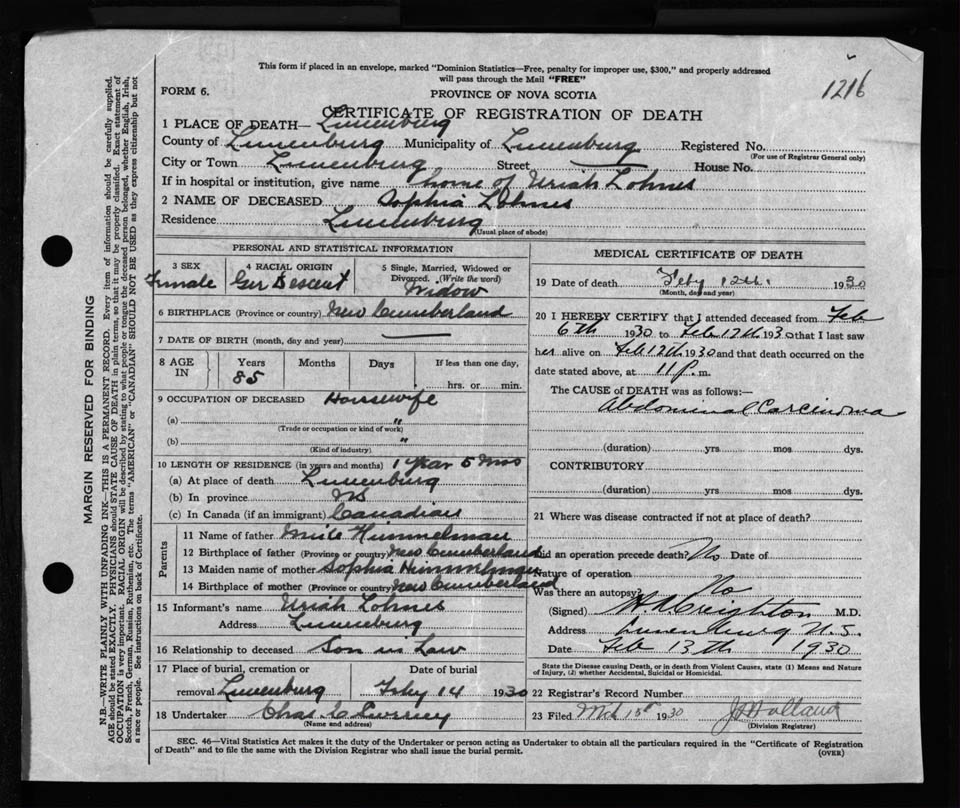 This form if placed in an envelope, marked "Dominion Statistics—Free, penalty for improper use, $300," and properly addressed
will pass through the Mail "FREE"
1216
FORM 6.
PROVINCE OF NOVA SCOTIA
CERTIFICATE OF REGISTRATION OF DEATH
1 PLACE OF DEATH— Lunenburg
County of Lunenburg Municipality of Lunenburg Registered No.
(For use of Registrar General only)
City or Town Lunenburg Street — House No.
If in hospital or institution, give name home of Uriah Lohnes
2 NAME OF DECEASED Sophia Lohnes
Residence Lunenburg
(Usual place of abode)
PERSONAL AND STATISTICAL INFORMATION
3 SEX Female
4 RACIAL ORIGIN Ger Descent
5 Single, Married, Widowed or
Divorced. (Write the word)
Widow
6 BIRTHPLACE (Province or country) New Cumberland
7 DATE OF BIRTH (month, day and year) —
8 AGE IN Years 85 Months Days If less than one day,
hrs. or min.
9 OCCUPATION OF DECEASED Housewife
(a) "
(Trade or occupation or kind of work)
(b) "
(Kind of industry)
10 LENGTH OF RESIDENCE (in years and months) 1 year 5 mos
(a) At place of death Lunenburg
(b) In province NS
(c) In Canada (if an immigrant) Canadian
Parents
11 Name of father Himmelman
12 Birthplace of father (Province or country) New Cumberland
13 Maiden name of mother Sophia Himmelman
14 Birthplace of mother (Province or country) New Cumberland
15 Informant's name Uriah Lohnes
Address Lunenburg
16 Relationship to deceased Son in Law
17 Place of burial, cremation or
removal Lunenburg
Date of burial
Feby 14 1930
18 Undertaker Chas C
(Name and address)
MEDICAL CERTIFICATE OF DEATH
19 Date of death Feby 12th. 1930
(Month, day and year)
20 I HEREBY CERTIFY that I attended deceased from Feb
6th 1930 to Feb 12th 1930 that I last saw
her alive on Feb 12th 1930 and that death occurred on the
date stated above, at 11 p. m.
The CAUSE of DEATH was as follows:—
Abdominal Carcinoma
(duration) yrs mos dys.
CONTRIBUTORY
(duration) yrs mos dys.
21 Where was disease contracted if not at place of death?
Did an operation precede death? No Date of
Nature of operation
Was there an autopsy? No
(Signed) Creighton M.D.
Address Lunenburg N.S.
Date Feb 13th 1930
State the Disease causing Death, or in death from Violent Causes, state (1) Means and Nature
of Injury, (2) whether Accidental, Suicidal or Homicidal.
22 Registrar's Record Number
23 Filed Mch 15th 1930 Holland
(Division Registrar)
SEC. 46—Vital Statistics Act makes it the duty of the Undertaker or person acting as Undertaker to obtain all the particulars required in the "Certificate of Registration
of Death" and to file the same with the Division Registrar who shall issue the burial permit.
(OVER)
MARGIN RESERVED FOR BINDING
N.B.—WRITE PLAINLY WITH UNFADING INK—THIS IS A PERMANENT RECORD. Every item of information should be carefully supplied.
AGE should be stated EXACTLY. PHYSICIANS should STATE CAUSE OF DEATH in plain terms, so that it may be properly classified. Exact statement of
OCCUPATION is very important. RACIAL ORIGIN will be described by stating to what people or tongue the deceased person belonged, whether English, Irish,
Scotch, French, German, Russian, Ruthenian, etc. The terms "AMERICAN" or "CANADIAN" SHOULD NOT BE USED as they express citizenship but not
a race or people. See instructions on back of Certificate.